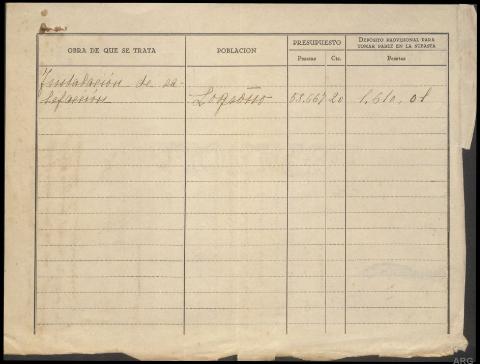 OBRA DE QUE SE TRATA
POBLACION
PRESUPUESTO
Pesetas
Cts.
DEPÓSITO PROVISIONAL PARA
TOMAR PARTE EN LA SUBASTA
Pesetas
Instalación de ca-
lefacción
Logroño
58.667 20
1.610,01
ARG